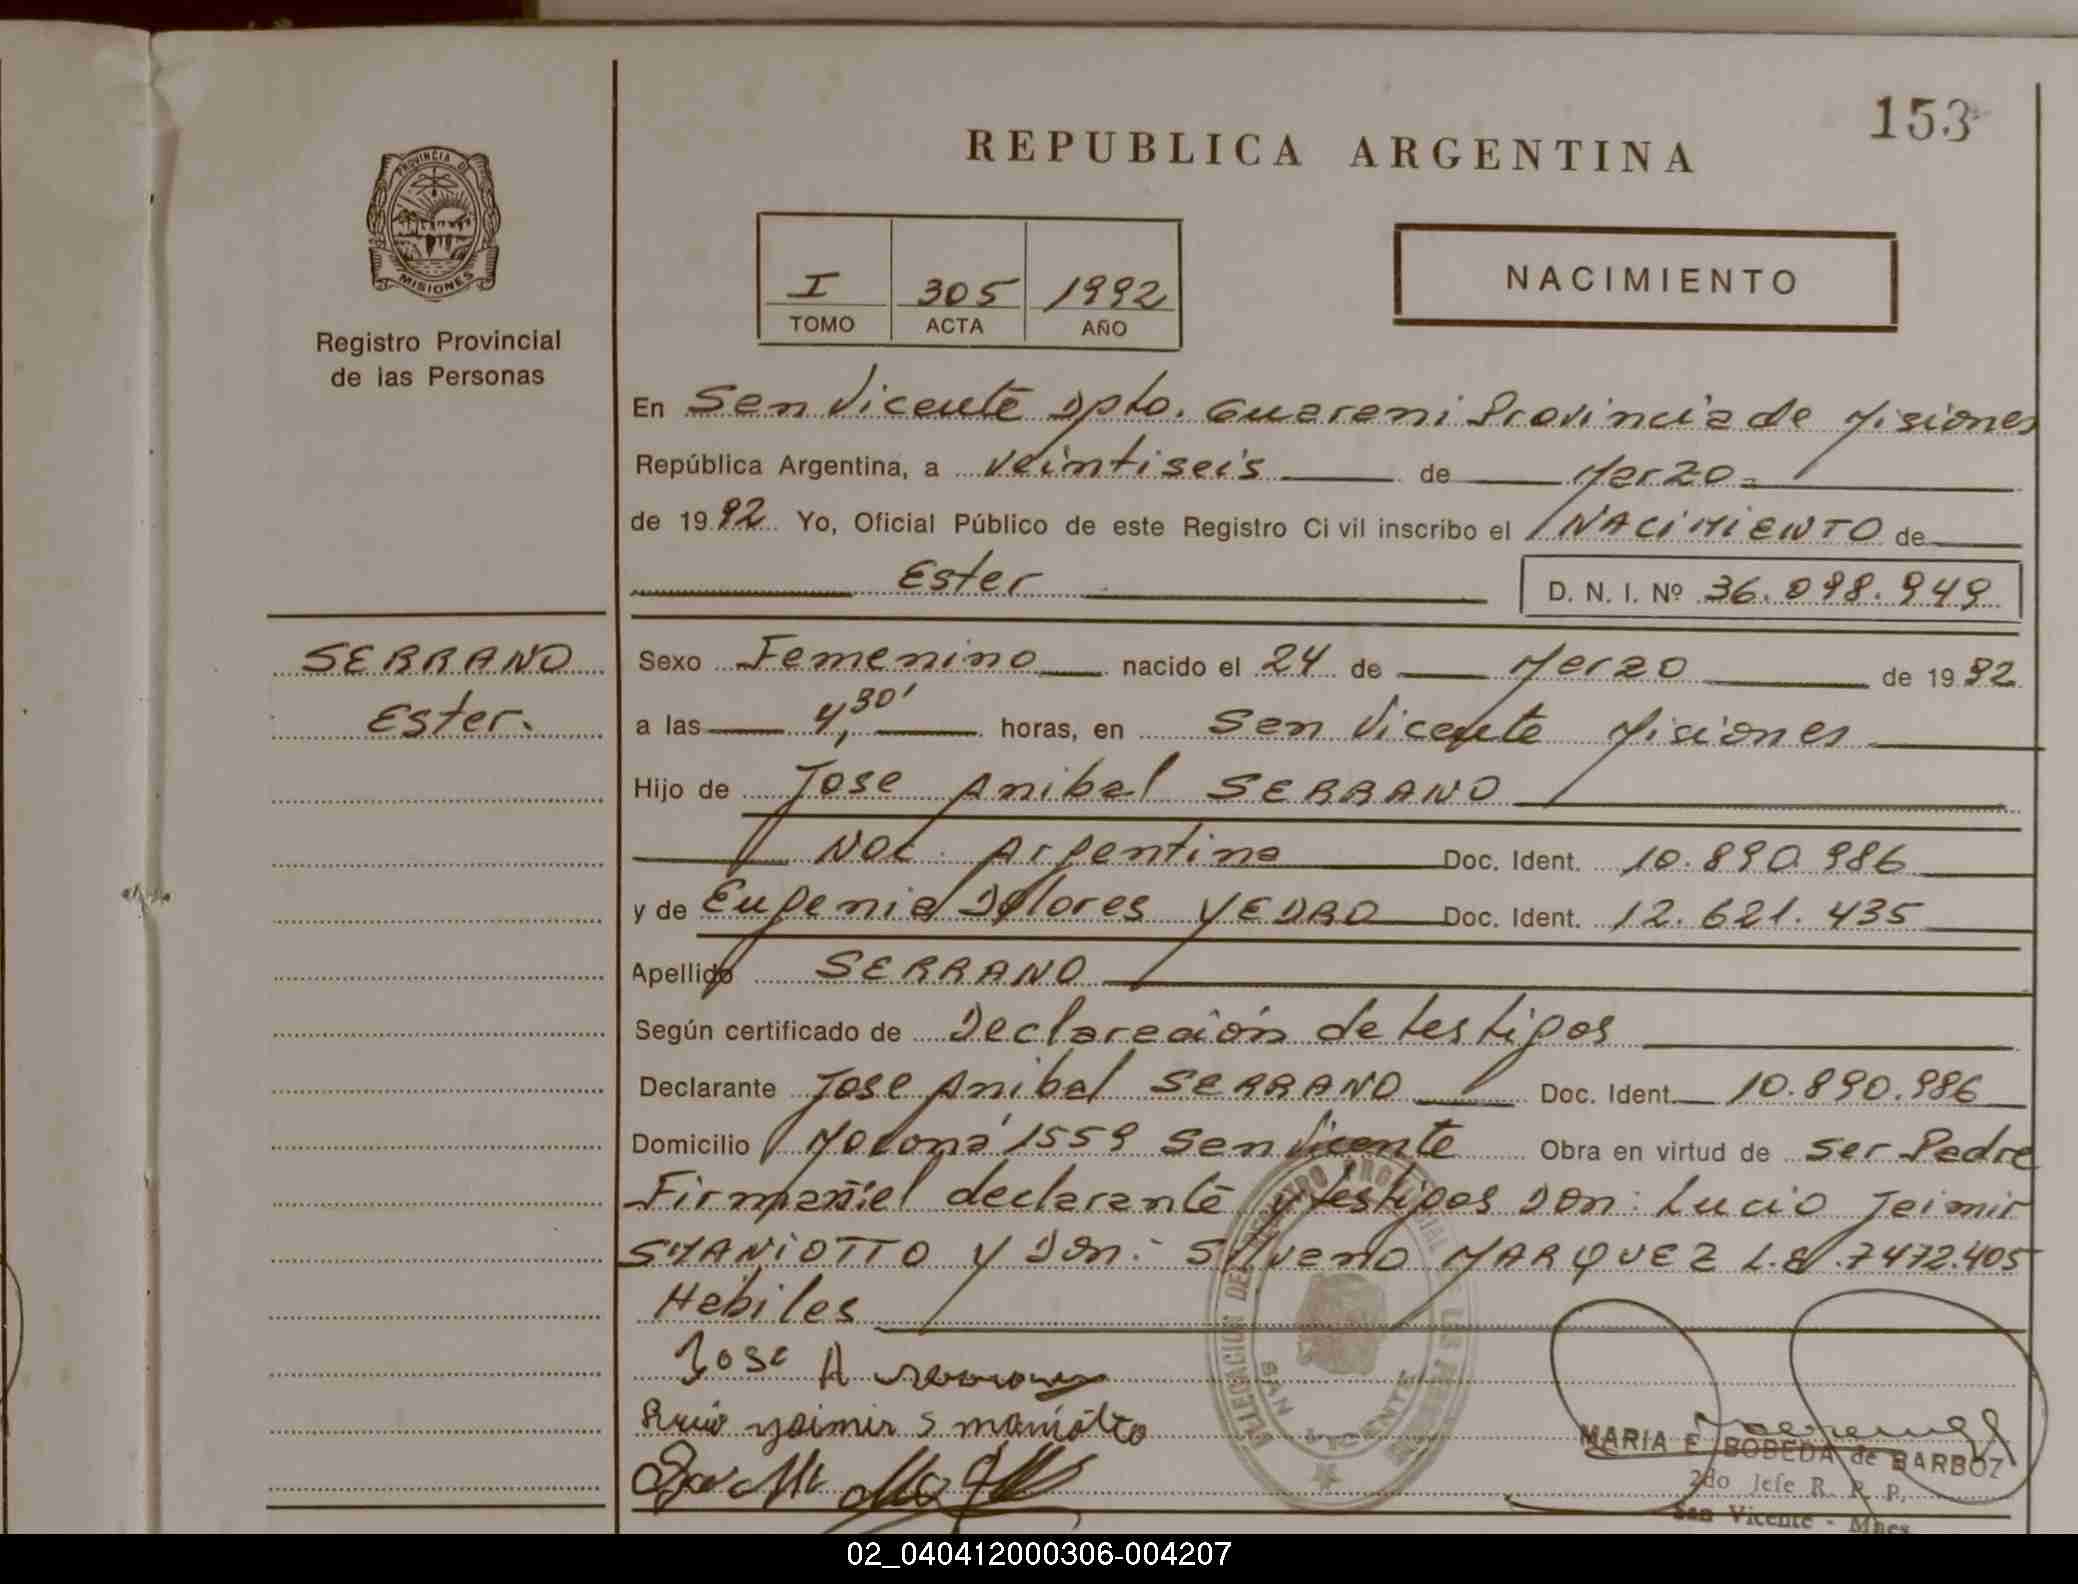 153
REPUBLICA ARGENTINA
PROVINCIA DE
MISIONES
Registro Provincial
de las Personas
I 305 1992
TOMO ACTA AÑO
NACIMIENTO
En San Vicente Dpto. Guarani Provincia de Misiones
República Argentina, a veintiseis de Marzo
de 1992 Yo, Oficial Público de este Registro Civil inscribo el NACIMIENTO de
Ester D. N. I. Nº 36.098.949
SERRANO
Ester.
Sexo Femenino nacido el 24 de Marzo de 1992
a las 4,30' horas, en San Vicente Misiones
Hijo de Jose Anibal SERRANO
Nac. Argentina Doc. Ident. 10.890.986
y de Eugenia Dolores YEDRO Doc. Ident. 12.621.435
Apellido SERRANO
Según certificado de Declaración de testigos
Declarante Jose Anibal SERRANO Doc. Ident. 10.890.986
Domicilio Moconá 1559 San Vicente Obra en virtud de ser Padre
Firman: el declarante y testigos Don: Lucio Jaimir
SMANIOTTO y Don: MARQUEZ L.E. 7472.405
Habiles
Jose A
yaimir Smaniotto
DELEGACION DEL REGISTRO PROVINCIAL DE LAS PERSONAS
SAN VICENTE
MARIA E. BOBEDA de BARBOZ
2do Jefe R. P. P.
San Vicente - Mnes
02_040412000306-004207